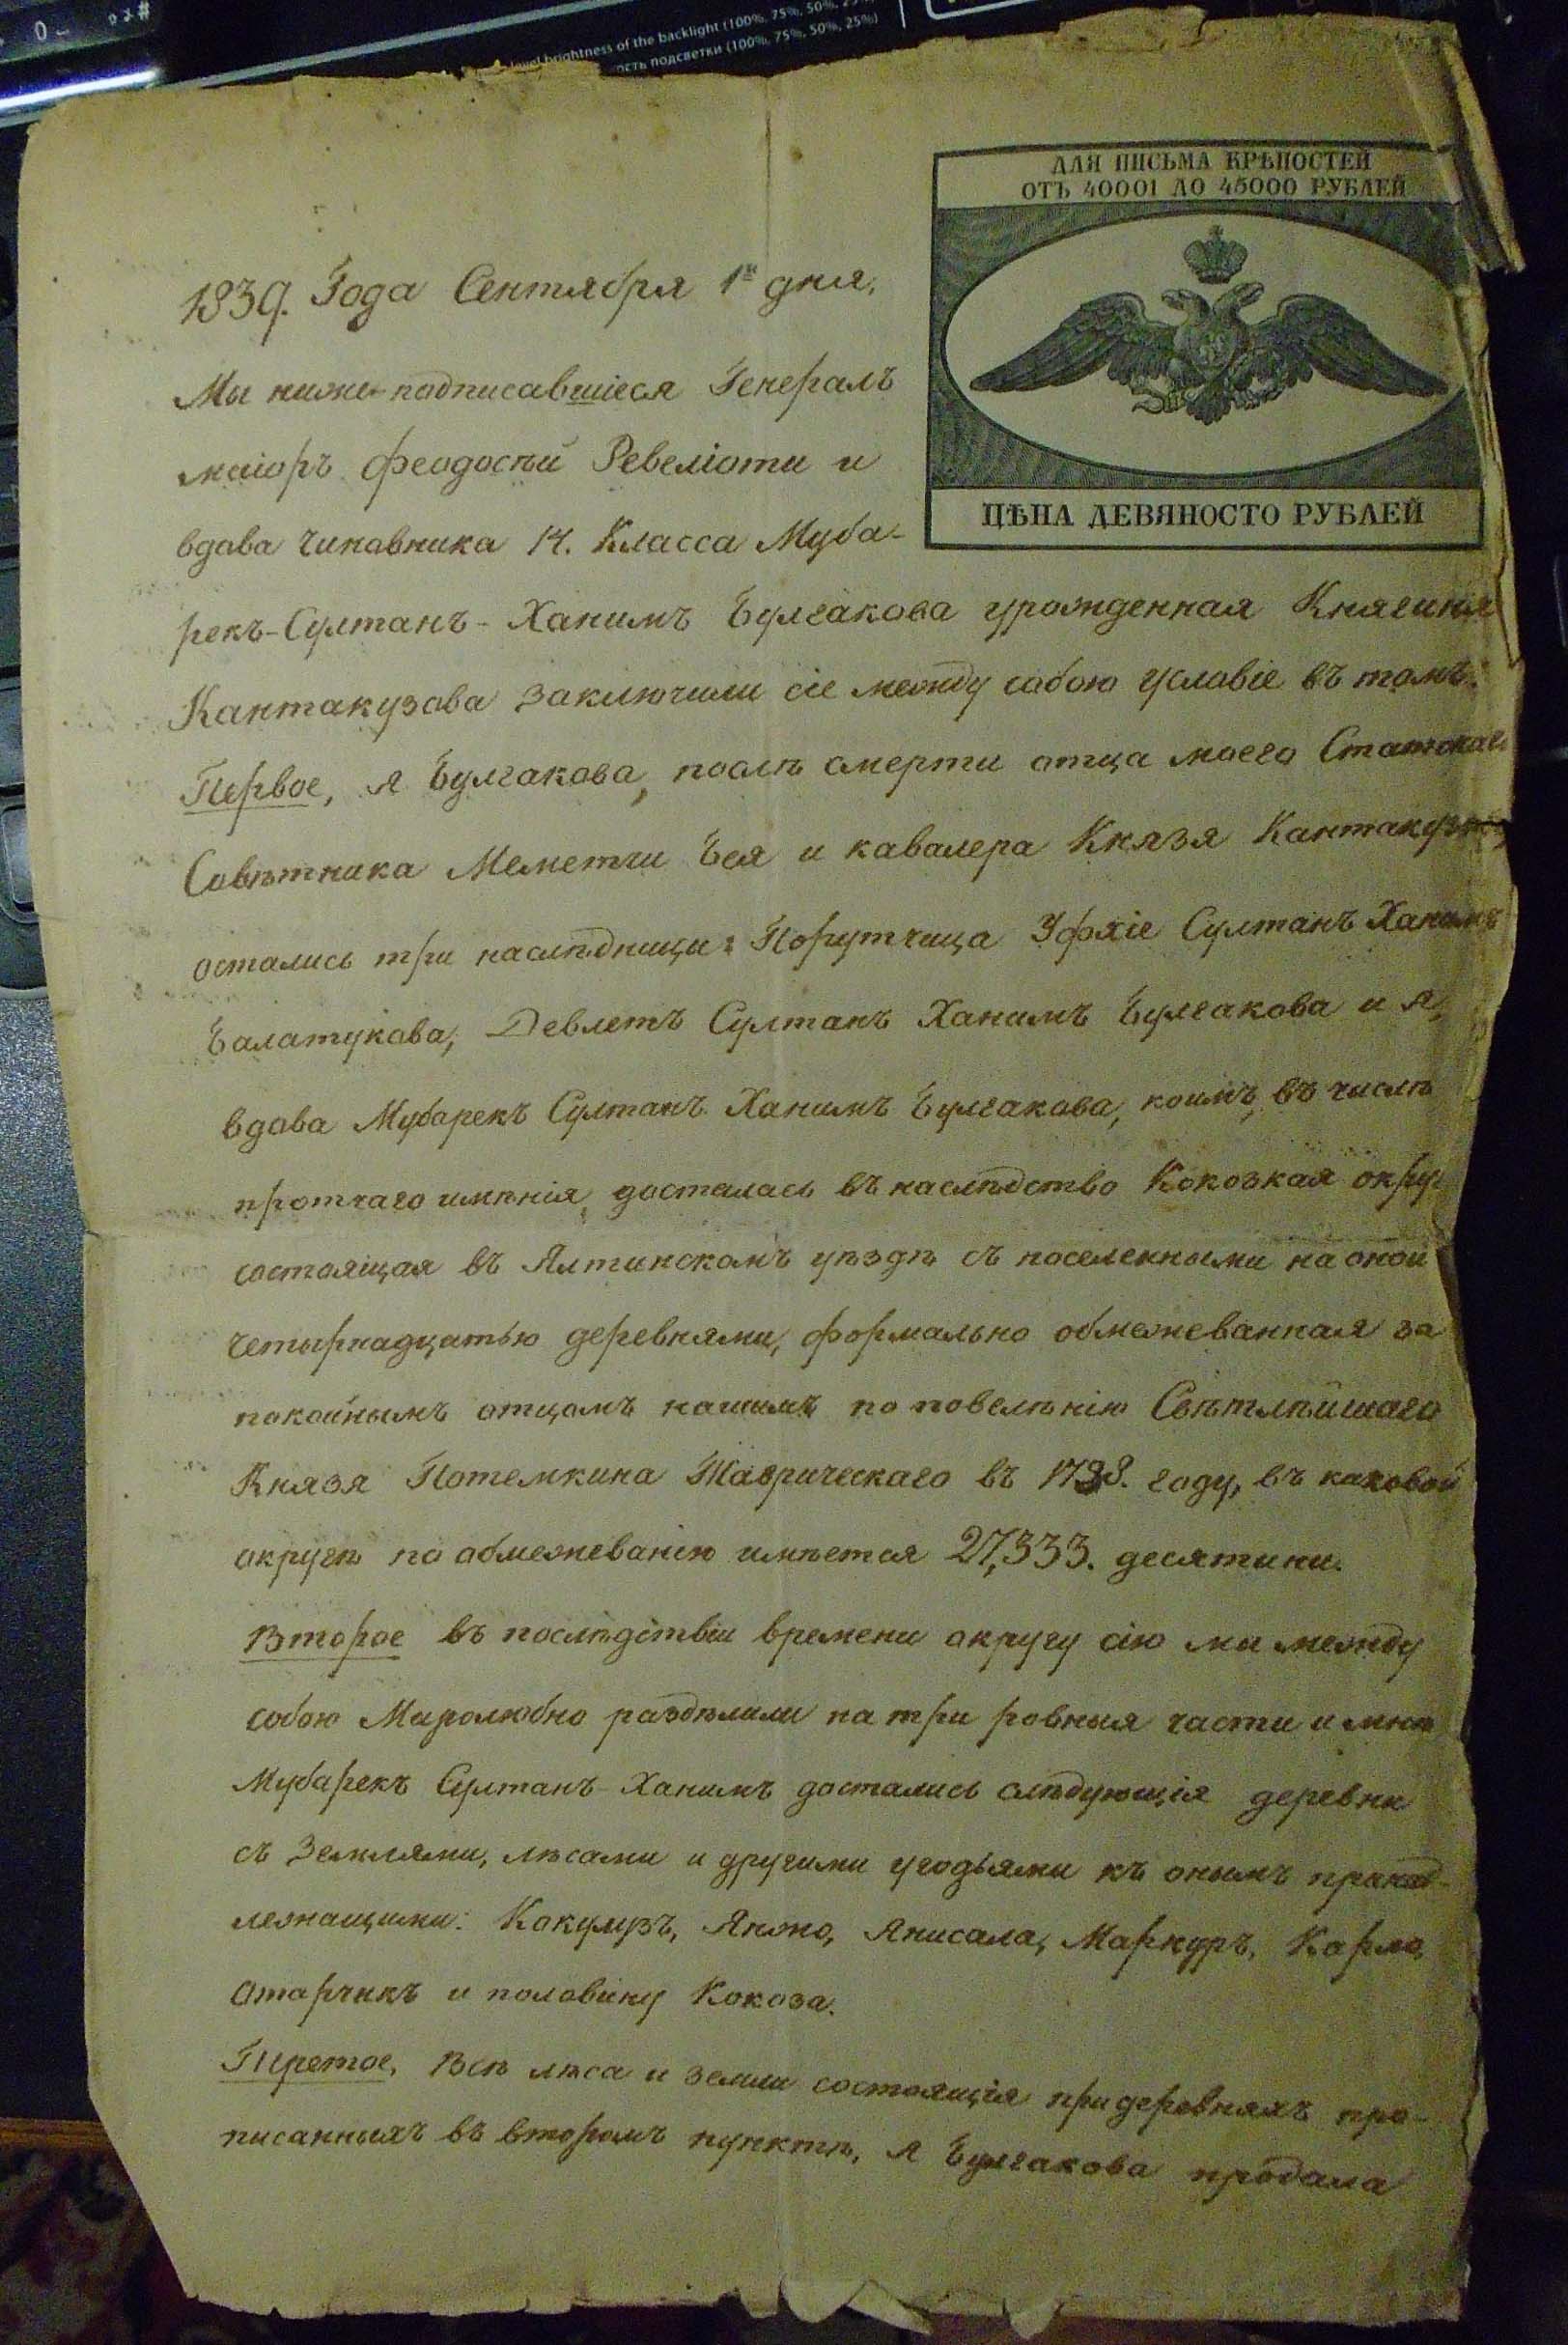 brightness of the backlight (100%, 75%, 50%, 25%)
ость подсветки (100%, 75%, 50%, 25%)
ДЛЯ ПИСЬМА КРѢПОСТЕЙ
ОТЪ 40001 ДО 45000 РУБЛЕЙ
ЦѢНА ДЕВЯНОСТО РУБЛЕЙ
1839. Года Сентября 1го дня,
Мы ниже-подписавшіеся Генералъ
маіоръ Феодосій Ревеліоти и
вдова чиновника 14. Класса Муба-
рекъ-Султанъ-Ханимъ Булгакова урожденная Княгиня
Кантакузова заключили сіе между собою условіе въ томъ:
Первое, я Булгакова, послѣ смерти отца моего Статскаго
Совѣтника Меметши Бея и кавалера Князя Кантакузова
остались три наслѣдницы: Порутчица Уфяіе Султанъ Ханимъ
Балатукова, Девлетъ Султанъ Ханимъ Булгакова и я,
вдова Мубарекъ Султанъ Ханимъ Булгакова, коимъ, въ числѣ
протчаго имѣнія, досталась въ наслѣдство Кокозкая округ
состоящая въ Ялтинскомъ уѣздѣ съ поселенными на оной
четырнадцатью деревнями, формально обмежеванная за
покойнымъ отцомъ нашимъ по повелѣнію Свѣтлѣйшаго
Князя Потемкина Таврическаго въ 1798. году, въ каковой
округѣ по обмежеванію имѣется 27,333. десятини.
Второе въ послѣдствіи времени округу сію ми между
собою Миролюбно раздѣлили на три ровныя части и мнѣ
Мубарекъ Султанъ-Ханимъ достались слѣдующія деревни
съ Землями, лѣсами и другими угодьями къ онымъ принад-
лежащими: Кокулузъ, Янжо, Янисала, Маркуръ, Карло,
Отарчикъ и половину Кокоза.
Третое, Всѣ лѣса и земли состоящія при деревняхъ про-
писанныхъ въ второмъ пунктѣ, я Булгакова продала